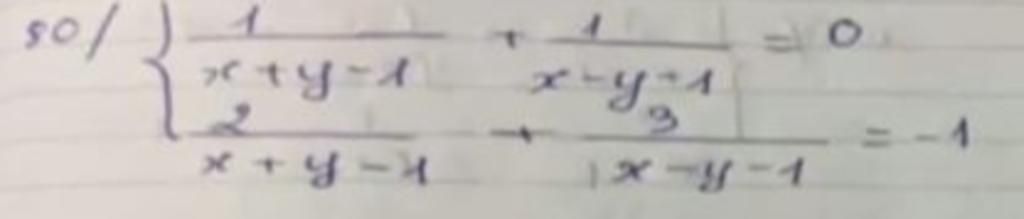 50/ { 1/(x+y-1) + 1/(x-y+1) = 0
2/(x+y-1) + 3/(x-y-1) = -1